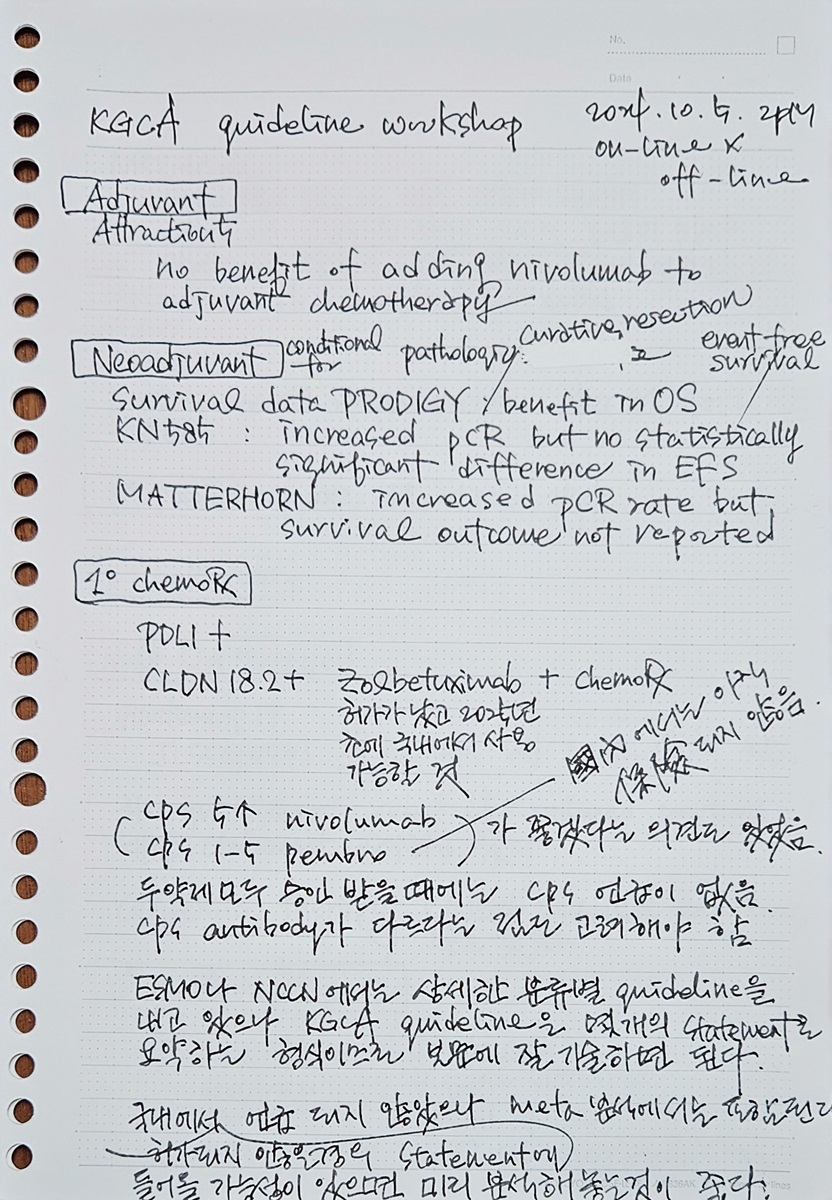 No.
Date
KGCA guideline workshop 2024.10.5. 2pm
on-line x
off-line
Adjuvant
Attraction5
no benefit of adding nivolumab to
adjuvant chemotherapy
Neoadjuvant conditional for pathology: curative resection event-free survival
survival data PRODIGY : benefit in OS
KN585 : increased pCR but no statistically
significant difference in EFS
MATTERHORN : increased pCR rate but
survival outcome not reported
1° chemoRx
PDL1 +
CLDN 18.2+ Zolbetuximab + chemoRx
허가가 났고 2025년
초에 국내에서 사용
가능할 것
國內에서는 아직
保險되지 않음.
CPS 5↑ nivolumab
CPS 1-5 pembro
가 좋겠다는 의견도 있었음.
두약제 모두 승인 받을 때에는 CPS 언급이 없음.
CPS antibody가 다르다는 점도 고려해야 함
ESMO나 NCCN에서는 상세한 분류별 guideline을
내고 있으나 KGCA guideline은 몇개의 statement로
요약하는 형식이므로 본문에 잘 기술하면 된다.
국내에서 언급되지 않았으나 meta 분석에서는 포함된다
허가되지 않은 statement에
들어올 가능성이 있으면 미리 분석해 놓는것이 좋다.